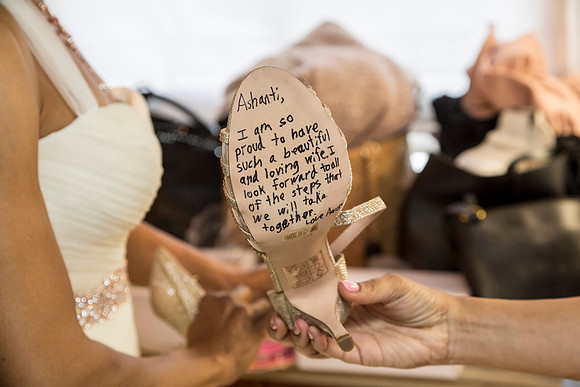 Ashanti,
I am so
proud to have
such a beautiful
and loving wife. I
look forward to all
of the steps that
we will take
together.
Love